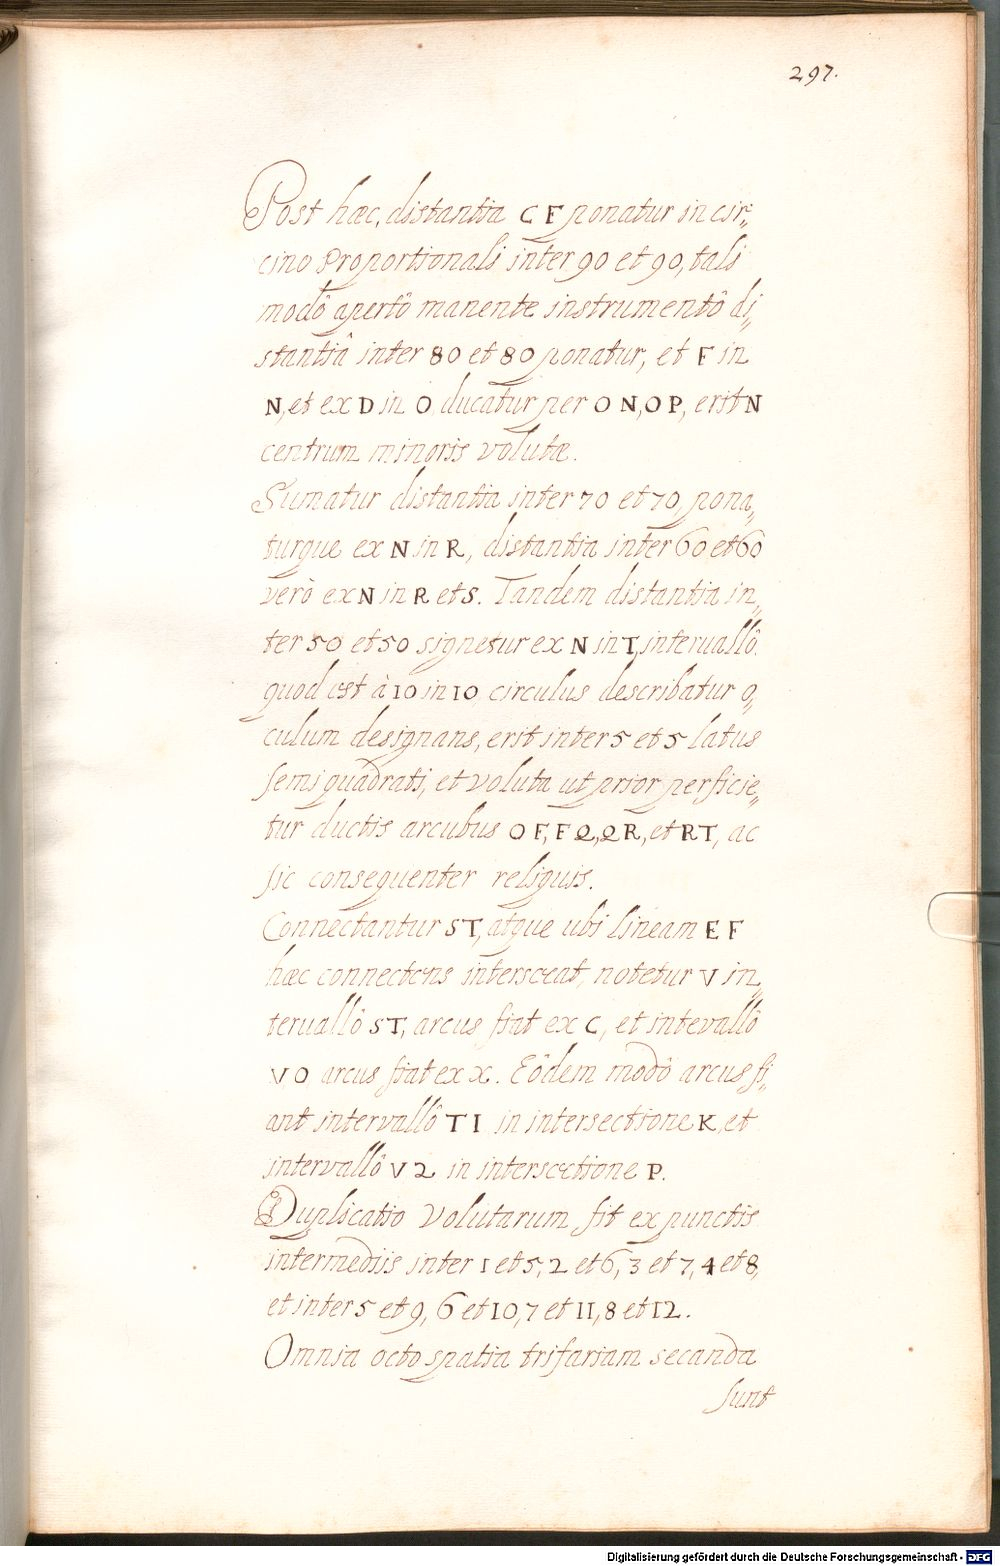 297.
Post hæc, distantia C F ponatur in cir„
cino Proportionali inter 90 et 90, tali
modô apertô manente instrumentô di„
stantiâ inter 80 et 80 ponatur, et F in
N, et ex D in O ducatur per O N, O P, erit N
centrum minoris volutæ.
Sumatur distantia inter 70 et 70, pona„
turque ex N in R, distantia inter 60 et 60
verò ex N in R et S. Tandem distantia in„
ter 50 et 50 signetur ex N in T, intervallô
quod est à 10 in 10 circulus describatur o„
culum designans, erit inter 5 et 5 latus
semiquadrati, et voluta ut prior perficie„
tur ductis arcubus O F, F Q, Q R, et R T, ac
sic consequenter reliquis.
Connectantur S T, atque ubi lineam E F
hæc connectens intersecat, notetur V in„
tervallô S T, arcus fiat ex C, et intevallô
V O arcus fiat ex x. Eôdem modô arcus fi„
ant intervallô T I in intersectione K, et
intervallô V 2 in intersectione P.
Duplicatio Volutarum fit ex punctis
intermediis inter 1 et 5, 2 et 6, 3 et 7, 4 et 8,
et inter 5 et 9, 6 et 10, 7 et 11, 8 et 12.
Omnia octo spatia trifariam secanda
sunt
Digitalisierung gefördert durch die Deutsche Forschungsgemeinschaft - DFG